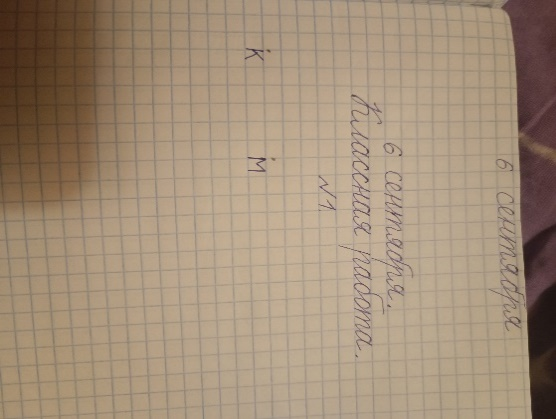 6 сентября
6 сентября.
Классная работа.
№1.
К М